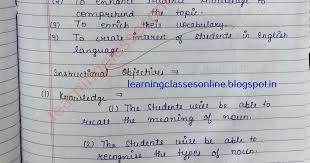 (2) To enhance students knowledge to
comprehend the topic.
(3) To enrich their vocabulary.
(4) To create interest of students in English
language.
Instructional Objectives ⇒
learningclassesonline.blogspot.in
(1) Knowledge ⇒
(1) The students will be able to
recall the meaning of noun.
(2) The students will be able to
recognise the types of noun.